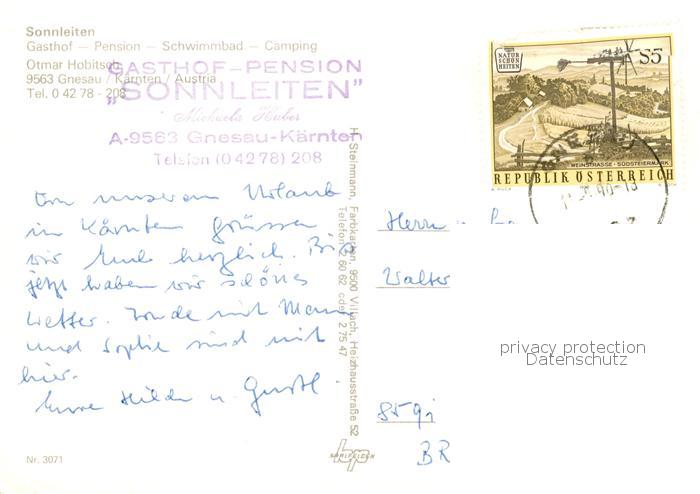 Sonnleiten
Gasthof – Pension – Schwimmbad – Camping
Otmar Hobitsch
9563 Gnesau / Kärnten / Austria
Tel. 0 42 78 - 208
GASTHOF-PENSION
„SONNLEITEN"
Michaela Huber
A-9563 Gnesau-Kärnten
Telefon (04278) 208
Von unserem Urlaub
in Kärnten Grüssen
wir Euch herzlich. Bis
jetzt haben wir schönes
Wetter. mit Mann
und Sophie sind mit
hier.
Eure Hilde u. Gustl.
Nr. 3071
H. Steinmann, Farbkarten, 9500 Villach, Heizhausstraße 52
Telefon 2 60 62 oder 2 75 47
NATUR
SCHÖN
HEITEN
S5
WEINSTRASSE - SÜDSTEIERMARK
REPUBLIK ÖSTERREICH
Herrn u.
Walter
privacy protection
Datenschutz
859
BR